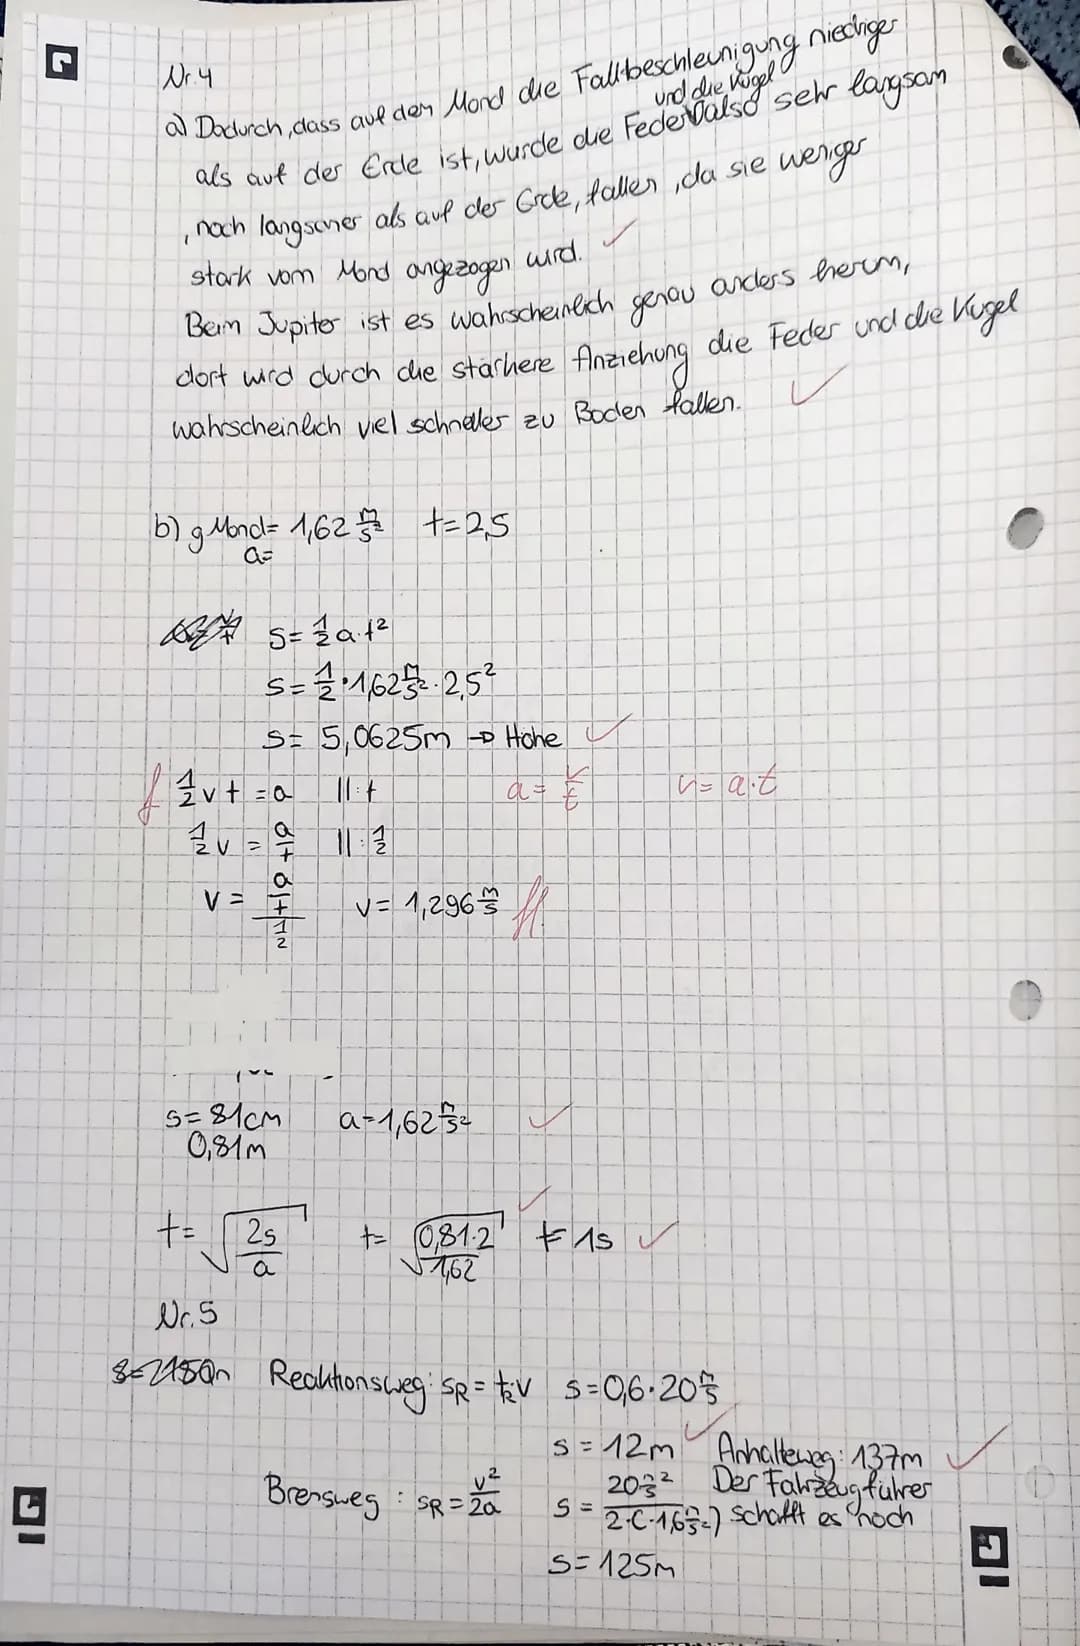 Nr. 4
a) Dadurch, dass auf dem Mond die Fallbeschleunigung niedriger
und die Kugel
als auf der Erde ist, wurde die Feder also sehr langsam
, noch langsamer als auf der Erde, fallen, da sie weniger
stark vom Mond angezogen wird. ✓
Beim Jupiter ist es wahrscheinlich genau anders herum,
dort wird durch die stärkere Anziehung die Feder und die Kugel
wahrscheinlich viel schneller zu Boden fallen. ✓
b) g Mond = 1,62 m/s² t = 2,5
a=
s = 1/2 a · t²
s = 1/2 · 1,62 m/s² · 2,5²
s = 5,0625m → Höhe ✓
f 1/2 v t = a || : t a = v/t v = a · t
1/2 v = a/t || : 1/2
v = a/t / 1/2 v = 1,296 m/s ff.
s = 81cm a = 1,62 m/s² ✓
0,81m
t = √(2s/a) t = √(0,81·2/1,62) ✓ t = 1s ✓
Nr. 5
Reaktionsweg: sR = tR·v s = 0,6 · 20 m/s
s = 12m ✓ Anhalteweg: 137m ✓
Bremsweg : sR = v²/2a s = 20 m/s² / 2·(-1,6 m/s²) Der Fahrzeugführer
schafft es noch
s = 125m